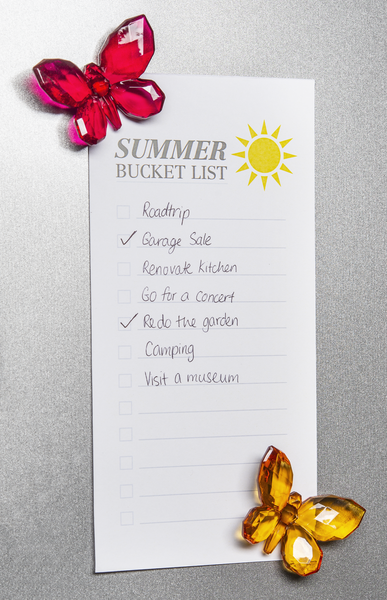 SUMMER
BUCKET LIST
Roadtrip
Garage Sale
Renovate kitchen
Go for a concert
Redo the garden
Camping
Visit a museum